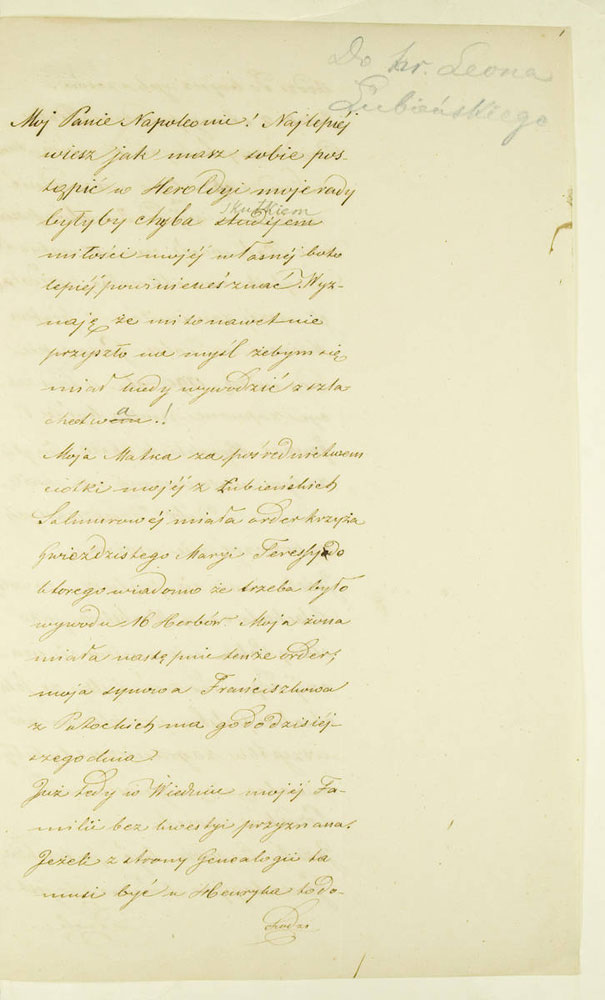 1
Do hr. Leona
Łubieńskiego
Mój Panie Napoleonie! Najlepiéj
wiesz jak masz sobie pos-
tąpić w Heroldyi moje rady
byłyby chyba studijem
skutkiem
miłości mojéj własnéj boto
lepiéj powinieneś znać. Wyz-
naję że mi to nawet nie
przyszło na myśl żebym się
miał kiedy wywodzić z szla
chectwem.!
a
Moja Matka za pośrednictwem
ciotki mojéj z Łubieńskich
Salmurowéj miała order krzyża
Gwieździstego Maryi Teressy do
którego wiadomo że trzeba było
wywodu 16 Herbów. Moja żona
miała następnie tenże order;
moja synowa Franciszkowa
z Potockich ma go do dzisiéj-
szego dnia.
Już tedy w Wiedniu mojéj Fa-
milii bez kwestyi przyznana.
Jeżeli z strony Genealogii ta
musi być u Henryka to do-